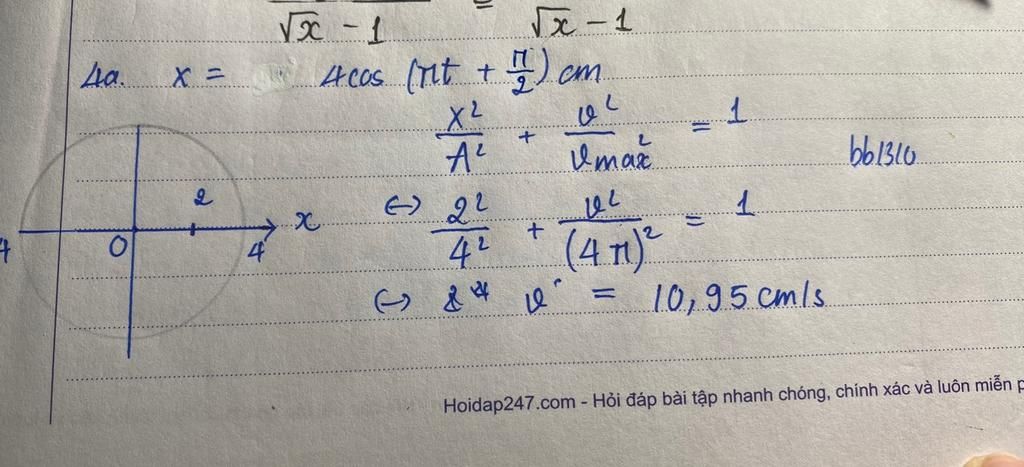 √x - 1 = √x - 1
4a. x = 4cos (πt + π/2) cm
x²/A² + v²/vmax² = 1
bb1310
2
<-> 2²/4² + v²/(4π)² = 1
x
0
4
4
<-> v = 10,95 cm/s
Hoidap247.com - Hỏi đáp bài tập nhanh chóng, chính xác và luôn miễn p